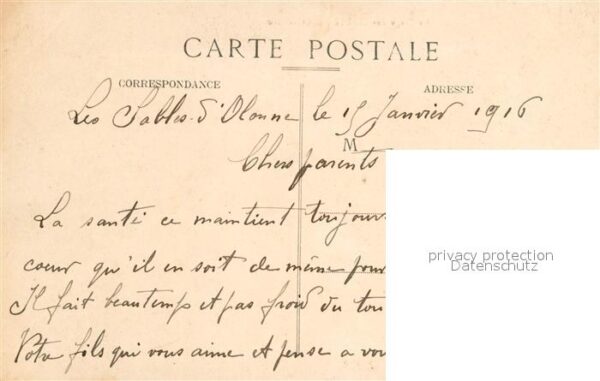 CARTE POSTALE
CORRESPONDANCE
ADRESSE
Les Sables-d'Olonne le 15 Janvier 1916
M
Chers parents
La santé ce maintient toujour
coeur qu'il en soit de même pour
Il fait beau temp et pas froid du tou
Votre fils qui vous aime et pense a vou
privacy protection
Datenschutz